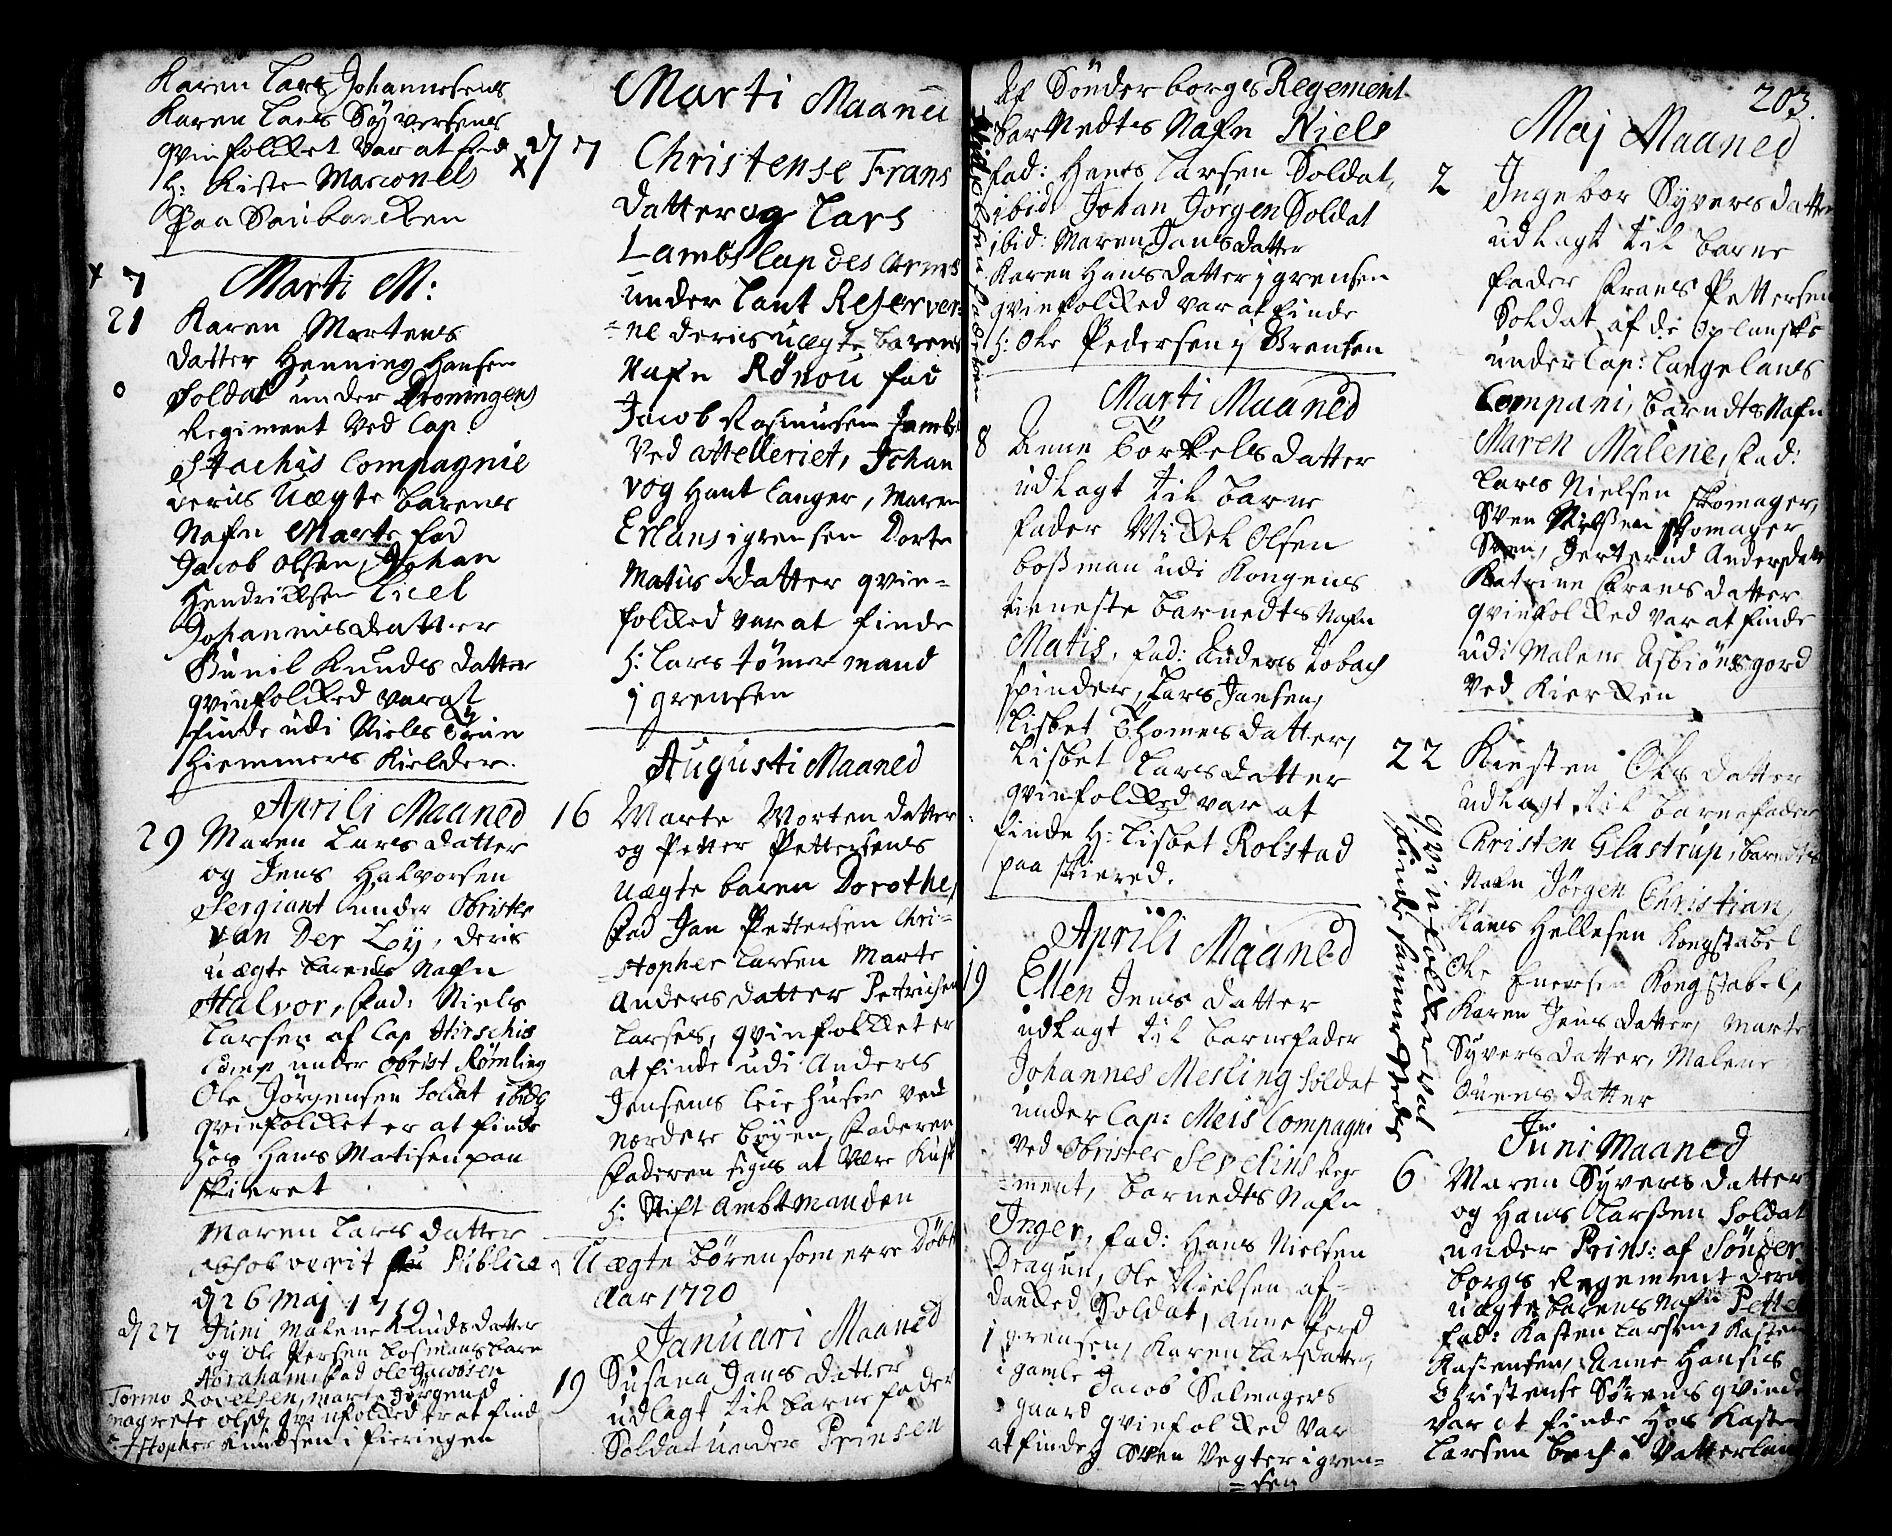 Karen Lars Johannesens
Karen Lars Syvertsens
qvinfolcket var at find
H: Kisten Marconels
Paa Saubancken
Marti M:
7
21 Karen Mortens
datter Henning Hansen
Soldat under Droningens
Regiment Ved Cap.
Stachis Compagnie
deris Uægte barens
Nafn Marte fad
Jacob Olsen, Johan
Hendricksen Lisel
Johannisdatter
Gunil Knuds datter
qvinfolcked var at
finde udi Niels
Hiemmers Kielder.
Aprili Maaned
29 Maren Lars datter
og Jens Halvorsen
Sergiant under Obrister
van Der Ley, deris
uægte barens Nafn
Halvor, Fad: Niels
Larsen af Cap Hirschis
Comp under Obrist Rømling
Ole Jörgensen Soldat ibid
qvinfolcket er at finde
hos Hans Matisen paa
skieret
Maren Lars datter
absolverit Publice
d 26 Maj 1719
d 27 Juni Malene Knudsdatter
og Ole Persen bosmans barn
Abraham fad Ole Jacobsen
Tormo Rovelsen, Marte Jörgensd
Magrete Olsd, qvinfolcked er at find
Kristopher Knudsen i Pieringen
Marti Maanet
d 7 Christense Frans
datter og Lars
Lambs Cap des Armes
under Laut Reserver-
=ne deris uægte barens
Nafn Rønou fad
Jacob Rasmusen Jamb
Ved attelleriet, Johan
Vog Hant langer, Maren
Erlans i grensen Dorte
Matis datter qvin-
folcked var at finde
H: Lars tömermand
j grensen
Augusti Maaned
16 Marte Morten datter
og Petter Pettersens
Uægte baren Dorothe,
Fad Jan Pettersen Chri-
=stopher Larsen Marte
Andersdatter Petrichen
Larses, qvinfolcket er
at finde udi Anders
Jensens leie huser Ved
nordre byen, Faderen
Faderen siges at Være Kusk
H: Stift Ambtmanden
Uægte Bören som erre Döbt
Aar 1720
Januari Maaned
19 Susana Jans datter
udlagt til barnefader
Soldat under Prinsen
Af Sönderborgs Regement
barnedts Nafn Niels
fad: Hans Larsen Soldat,
ibid: Johan Jörgen Soldat
ibid: Maren Jansdatter
Karen Hans datter j grensen
qvinfolcked var at finde
H: Ole Pedersen j Grensen
Marti Maaned
8 Anne Torkels datter
udlagt til barne
fader Mickel Olsen
bosman udi Kongens
tieneste barnedts Nafn
Matis, fad: Anders tobach
spinder, Lars Jansen,
Lisbet Thomes datter,
Lisbet Larsdatter
qvinfolcked var at
finde H: Lisbet Rolstad
paa skiered.
Aprili Maaned
19 Ellen Jens datter
udlagt til barnefader
Johannes Mesling Soldat
under Cap: Meis Compagni
Ved Obrister Sevelins Rege
=ment, barnedts Nafn
Inger, fad: Hans Nielsen
Dragun, Ole Nielsen af-
dancked Soldat, Anne Persd
i grensen, Karen Larsdatter,
i gamle Jacob Salmagers
gaard qvinfolcked Var
at finde H Sven Vegter i gren=
=sen
203.
Maj Maaned
2 Ingebor Syvers datter
udlagt til barne
fader Frans Pettersen
Soldat af de Oplanske
under Cap: Langelans
Compani, barndts Nafn
Maren Malene, Fad:
Lars Nielsen skomager,
Sven Nielsen skomager
Sven, Jertrud Andersdatt
Katrine Frans datter
qvinfolcked var at finde
udi Malene Asbiönsgord
Ved Kiercken
22 Kiersten Ols datter
udlagt til barnefader
Christen Glastrup, barndts
Nafn Jörgen Christian,
Hans Hellesen Kongstabel
Ole Enersen Kongstabel,
Karen Jens datter, Marte
Syvers datter, Malene
Svens datter
qvinfolcket var at
finde samme steder
Juni Maaned
6 Maren Syvers datter
og Hans Larsen Soldat
under Prins: af Sönder
borgs Regement deris
uægte barens Nafn Petter
fad: Kasten Larsen, Kasten
Kastensen, Anne Hansis
Christense Sörens qvinde
var at finde hos Kasten
Larsen bech i Vatterland